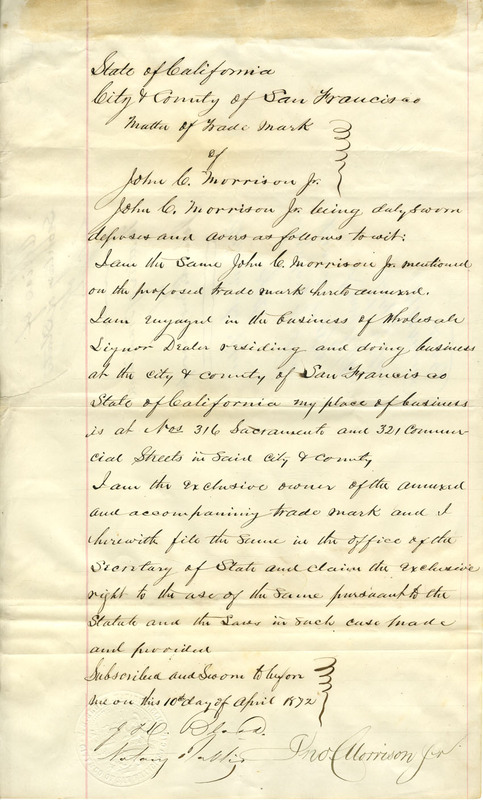 State of California
City & County of San Francisco
Matter of Trade Mark
of
John C. Morrison Jr.
John C. Morrison Jr. being duly sworn
deposes and avers as follows to wit:
I am the same John C. Morrison Jr. mentioned
on the proposed trade mark hereto annexed.
I am engaged in the business of Wholesale
Liquor Dealer residing and doing business
at the city & county of San Francisco
State of California my place of business
is at Nos 316 Sacramento and 321 Commer-
cial Streets in said city & county
I am the exclusive owner of the annexed
and accompanining trade mark and I
herewith file the same in the office of the
Secretary of State and claim the exclusive
right to the use of the same pursuant to the
Statute and the Laws in such case made
and provided
Subscribed and Sworn to before
me on this 10th day of April 1872
Notary Public
Jno C Morrison Jr